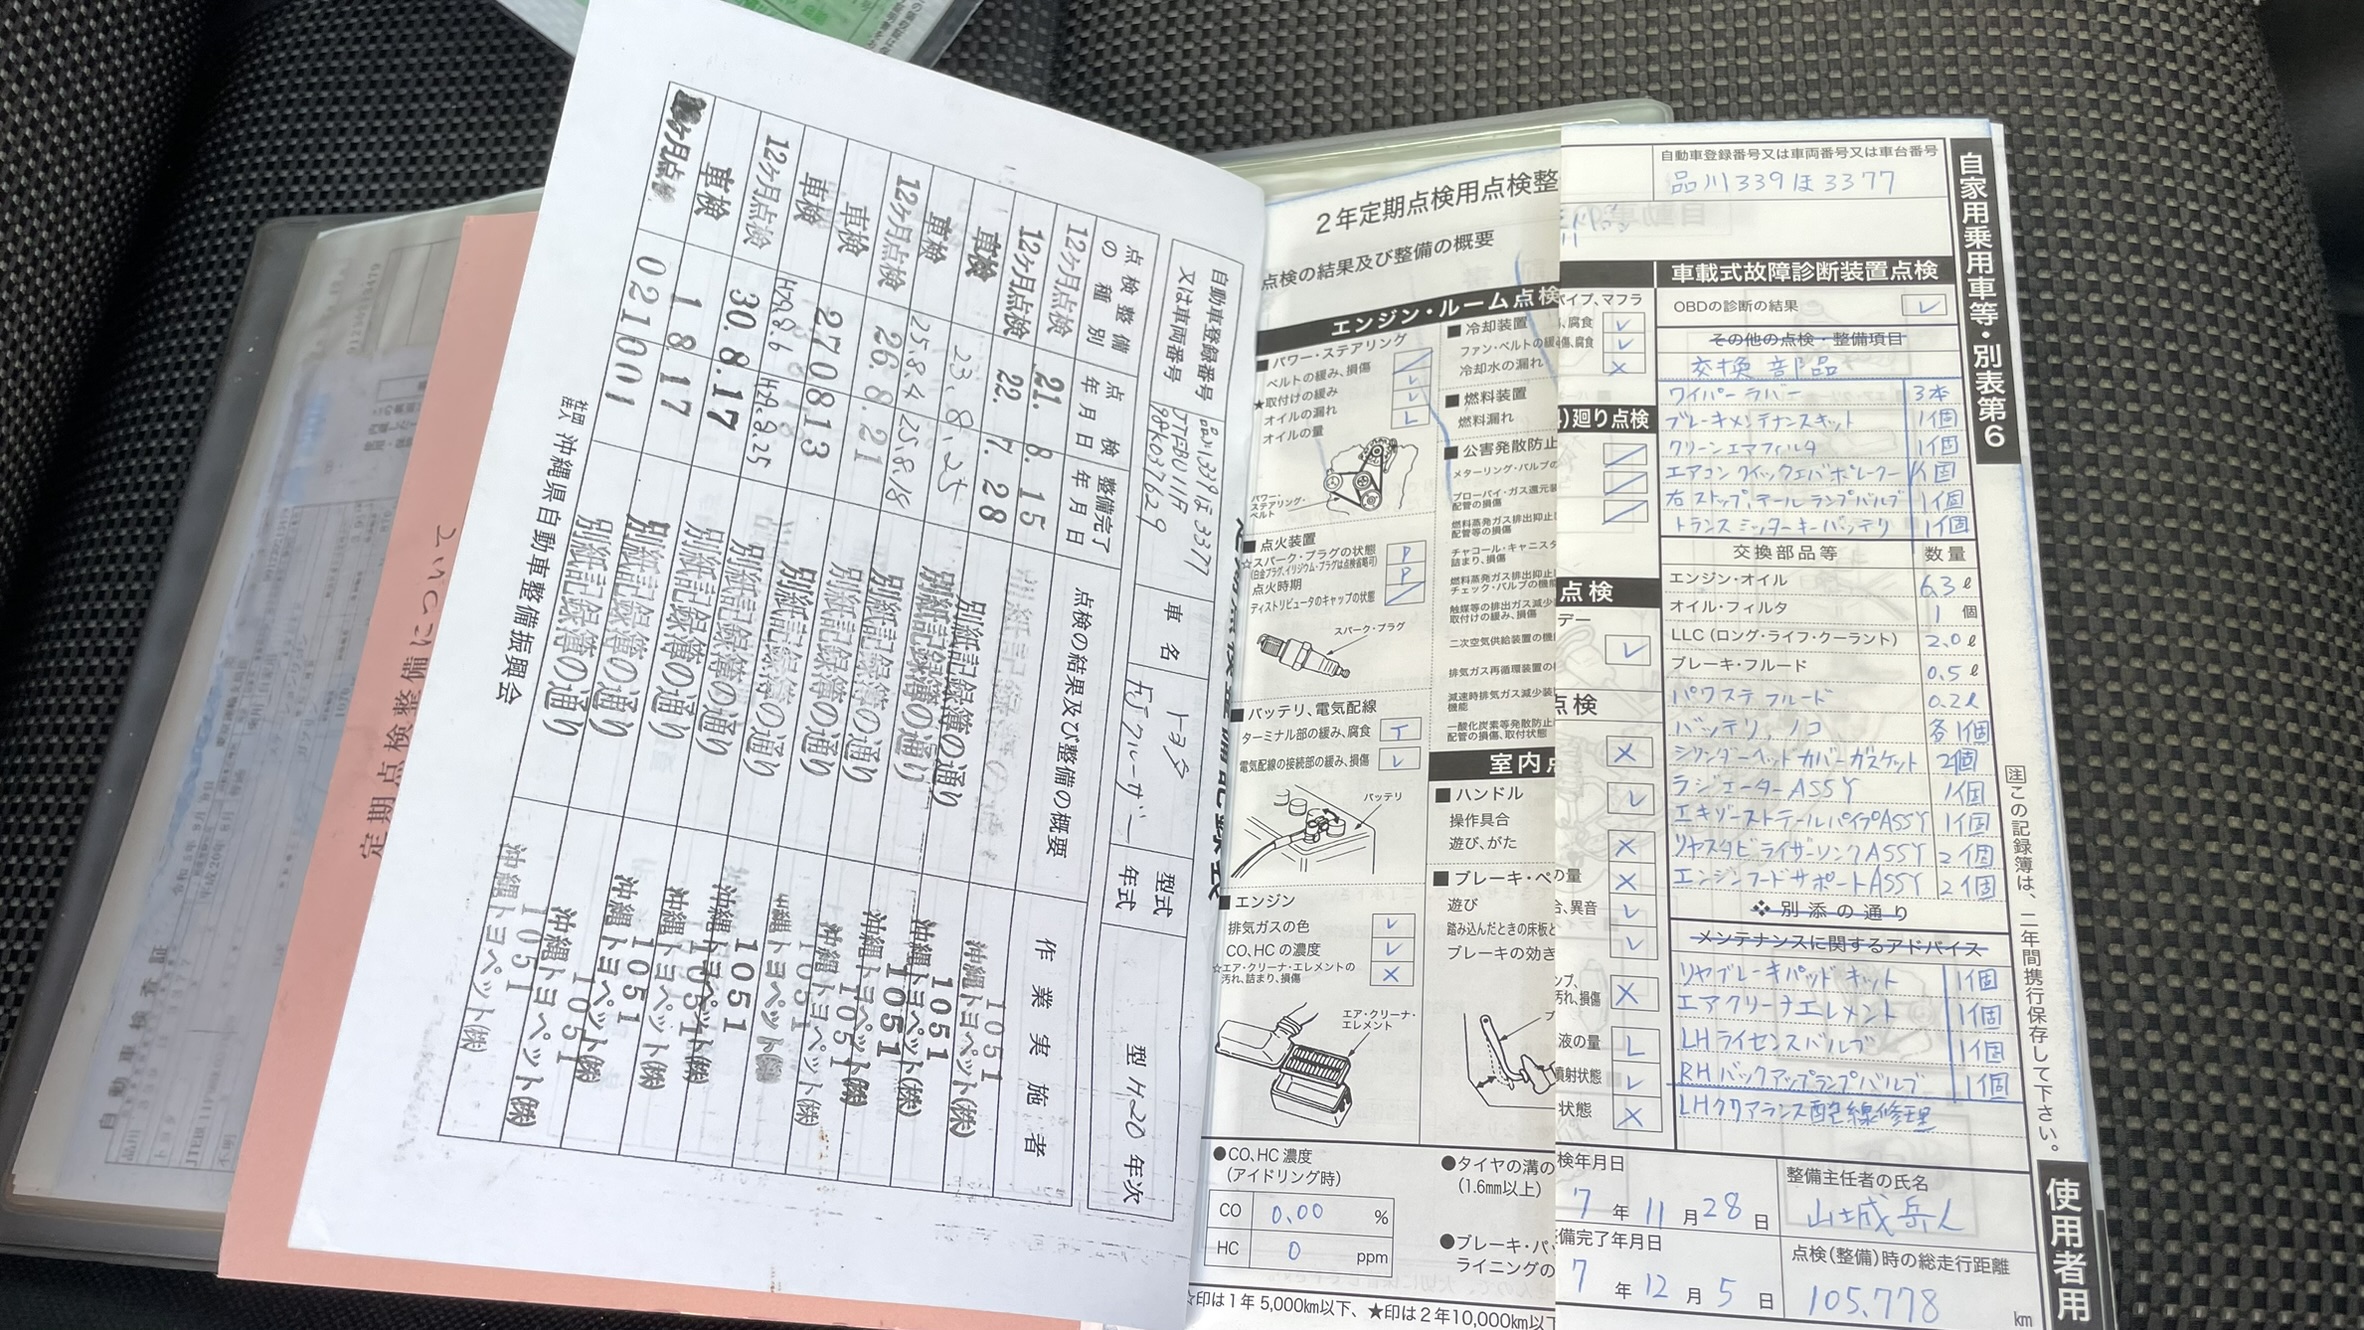 自動車登録番号
又は車両番号
品川339ほ3377
JTEBU11F
88K037629
車名
トヨタ
FJクルーザー
型式
年式
型 H20 年次
点検整備の種別
点検年月日
整備完了年月日
点検の結果及び整備の概要
作業実施者
12ヶ月点検 21. 8. 15
12ヶ月点検 22. 7. 28 別紙記録簿の通り 1051 沖縄トヨペット㈱
車検 23. 8. 25 別紙記録簿の通り 1051 沖縄トヨペット㈱
12ヶ月点検 25.8.4 25.8.18 別紙記録簿の通り 1051 沖縄トヨペット㈱
車検 26. 8. 21 別紙記録簿の通り 1051 沖縄トヨペット㈱
車検 270813 別紙記録簿の通り 1051 沖縄トヨペット㈱
12ヶ月点検 H29.8.6 H29.8.25 別紙記録簿の通り 1051 沖縄トヨペット㈱
車検 30. 8. 17 別紙記録簿の通り 1051 沖縄トヨペット㈱
車検 1 8. 17 別紙記録簿の通り 1051 沖縄トヨペット㈱
ヶ月点検 021001 別紙記録簿の通り 1051 沖縄トヨペット㈱
沖縄県自動車整備振興会
定期点検整備について
自動車検査証
2年定期点検用点検整
点検の結果及び整備の概要
エンジン・ルーム点検
■パワー・ステアリング
ベルトの緩み、損傷
★取付けの緩み
オイルの漏れ
オイルの量
パワー・ステアリング・ベルト
■点火装置
☆スパーク・プラグの状態 P
(白金プラグ、イリジウム・プラグは点検省略可)
点火時期 P
ディストリビュータのキャップの状態
スパーク・プラグ
■バッテリ、電気配線
ターミナル部の緩み、腐食 T
電気配線の接続部の緩み、損傷
バッテリ
■エンジン
排気ガスの色
CO、HCの濃度
☆エア・クリーナ・エレメントの
汚れ、詰まり、損傷 ×
エア・クリーナ・エレメント
●CO、HC濃度
(アイドリング時)
CO 0.00 %
HC 0 ppm
☆印は1年5,000km以下、★印は2年10,000km以下
■冷却装置
ファン・ベルトの緩
冷却水の漏れ
■燃料装置
燃料漏れ
■公害発散防止
メターリング・バルブの
ブローバイ・ガス還元装
配管の損傷
燃料蒸発ガス排出抑止
配管等の損傷
チャコール・キャニスタ
詰まり、損傷
燃料蒸発ガス排出抑止
チェック・バルブの機能
触媒等の排出ガス減少
取付けの緩み、損傷
二次空気供給装置の機
排気ガス再循環装置の
減速時排気ガス減少装
機能
一酸化炭素等発散防止
配管の損傷、取付状態
室内点
■ハンドル
操作具合
遊び、がた
■ブレーキ・ペ
遊び
踏み込んだときの床板と
ブレーキの効き
●タイヤの溝の
(1.6mm以上)
●ブレーキ・パッ
ライニングの
自動車登録番号又は車両番号又は車台番号
品川339ほ3377
自家用乗用車等・別表第6
パイプ、マフラ
、腐食
傷、腐食
廻り点検
点検
デー
点検
の量
合、異音
ンプ、
汚れ、損傷
液の量
噴射状態
状態
車載式故障診断装置点検
OBDの診断の結果
その他の点検・整備項目
交換部品
ワイパーラバー 3本
ブレーキメンテナンスキット 1個
クリーンエアフィルタ 1個
エアコンクイックエバポレーター 1個
右ストップ、テールランプバルブ 1個
トランスミッターキーバッテリ 1個
交換部品等 数量
エンジン・オイル 6.3ℓ
オイル・フィルタ 1個
LLC(ロング・ライフ・クーラント) 2.0ℓ
ブレーキ・フルード 0.5ℓ
パワステフルード 0.2ℓ
バッテリ、ノコ 各1個
シリンダーヘッドカバーガスケット 2個
ラジエーターASSY 1個
エキゾーストテールパイプASSY 1個
リヤスタビライザーリンクASSY 2個
エンジンフードサポートASSY 2個
❖別添の通り
メンテナンスに関するアドバイス
リヤブレーキパッドキット 1個
エアクリーナエレメント 1個
LHライセンスバルブ 1個
RHバックアップランプバルブ 1個
LHクリアランス配線修理
検年月日
7年11月28日
備完了年月日
7年12月5日
整備主任者の氏名
山城岳人
点検(整備)時の総走行距離
105,778 km
注 この記録簿は、二年間携行保存して下さい。
使用者用